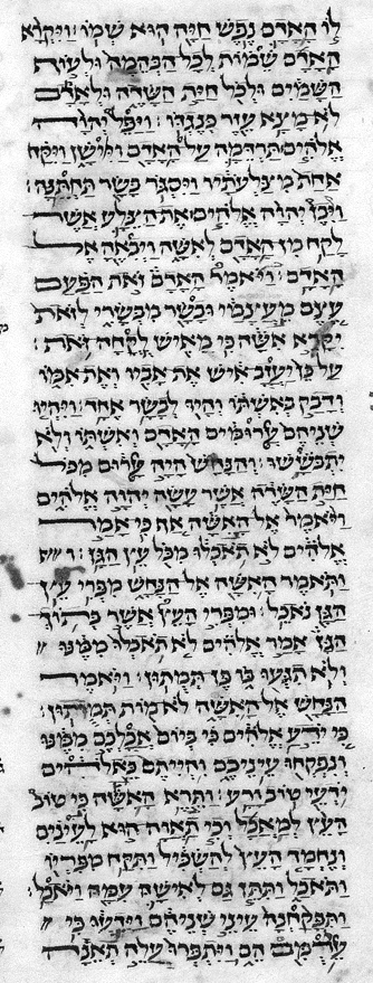 לוֹ הָאָדָם נֶפֶשׁ חַיָּה הוּא שְׁמוֹ׃ וַיִּקְרָא
הָאָדָם שֵׁמוֹת לְכָל הַבְּהֵמָה וּלְעוֹף
הַשָּׁמַיִם וּלְכֹל חַיַּת הַשָּׂדֶה וּלְאָדָם
לֹא מָצָא עֵזֶר כְּנֶגְדּוֹ׃ וַיַּפֵּל יְהוָה
אֱלֹהִים תַּרְדֵּמָה עַל הָאָדָם וַיִּישָׁן וַיִּקַּח
אַחַת מִצַּלְעֹתָיו וַיִּסְגֹּר בָּשָׂר תַּחְתֶּנָּה׃
וַיִּבֶן יְהוָה אֱלֹהִים אֶת הַצֵּלָע אֲשֶׁר
לָקַח מִן הָאָדָם לְאִשָּׁה וַיְבִאֶהָ אֶל
הָאָדָם׃ וַיֹּאמֶר הָאָדָם זֹאת הַפַּעַם
עֶצֶם מֵעֲצָמַי וּבָשָׂר מִבְּשָׂרִי לְזֹאת
יִקָּרֵא אִשָּׁה כִּי מֵאִישׁ לֻקֳחָה זֹאת׃
עַל כֵּן יַעֲזָב אִישׁ אֶת אָבִיו וְאֶת אִמּוֹ
וְדָבַק בְּאִשְׁתּוֹ וְהָיוּ לְבָשָׂר אֶחָד׃ וַיִּהְיוּ
שְׁנֵיהֶם עֲרוּמִּים הָאָדָם וְאִשְׁתּוֹ וְלֹא
יִתְבֹּשָׁשׁוּ׃ וְהַנָּחָשׁ הָיָה עָרוּם מִכֹּל
חַיַּת הַשָּׂדֶה אֲשֶׁר עָשָׂה יְהוָה אֱלֹהִים
וַיֹּאמֶר אֶל הָאִשָּׁה אַף כִּי אָמַר
אֱלֹהִים לֹא תֹאכְלוּ מִכֹּל עֵץ הַגָּן׃
וַתֹּאמֶר הָאִשָּׁה אֶל הַנָּחָשׁ מִפְּרִי עֵץ
הַגָּן נֹאכֵל׃ וּמִפְּרִי הָעֵץ אֲשֶׁר בְּתוֹךְ
הַגָּן אָמַר אֱלֹהִים לֹא תֹאכְלוּ מִמֶּנּוּ
וְלֹא תִגְּעוּ בּוֹ פֶּן תְּמֻתוּן׃ וַיֹּאמֶר
הַנָּחָשׁ אֶל הָאִשָּׁה לֹא מוֹת תְּמֻתוּן׃
כִּי יֹדֵעַ אֱלֹהִים כִּי בְּיוֹם אֲכָלְכֶם מִמֶּנּוּ
וְנִפְקְחוּ עֵינֵיכֶם וִהְיִיתֶם כֵּאלֹהִים
יֹדְעֵי טוֹב וָרָע׃ וַתֵּרֶא הָאִשָּׁה כִּי טוֹב
הָעֵץ לְמַאֲכָל וְכִי תַאֲוָה הוּא לָעֵינַיִם
וְנֶחְמָד הָעֵץ לְהַשְׂכִּיל וַתִּקַּח מִפִּרְיוֹ
וַתֹּאכַל וַתִּתֵּן גַּם לְאִישָׁהּ עִמָּהּ וַיֹּאכַל׃
וַתִּפָּקַחְנָה עֵינֵי שְׁנֵיהֶם וַיֵּדְעוּ כִּי
עֵירֻמִּם הֵם וַיִּתְפְּרוּ עֲלֵה תְאֵנָה